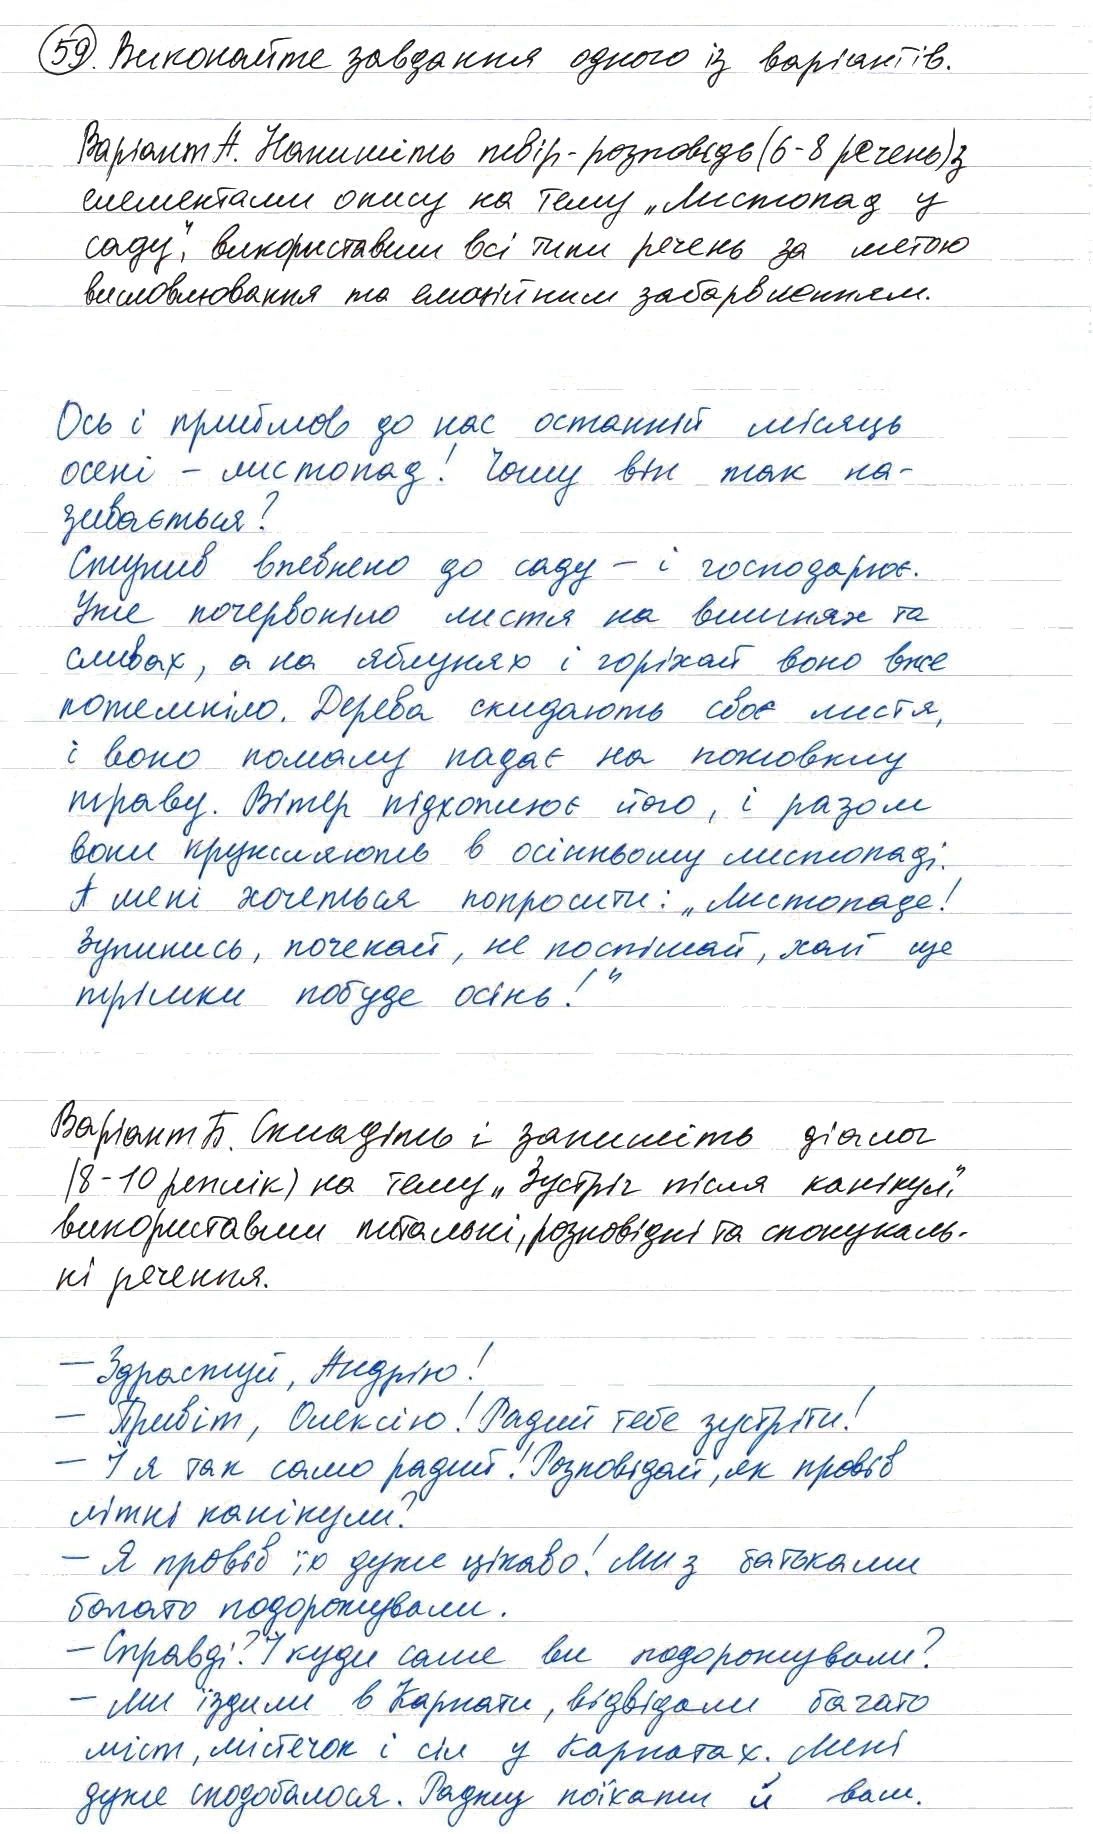 59. Виконайте завдання одного із варіантів.
Варіант А. Напишіть твір-розповідь (6-8 речень) з
елементами опису на тему „Листопад у
саду", використавши всі типи речень за метою
висловлювання та емоційним забарвленням.
Ось і прийшов до нас останній місяць
осені – листопад! Чому він так на-
зивається?
Ступив впевнено до саду – і господарює.
Уже почервоніло листя на вишнях та
сливах, а на яблунях і горіхах воно вже
потемніло. Дерева скидають своє листя,
і воно помалу падає на пожовклу
траву. Вітер підхоплює його, і разом
вони кружляють в осінньому листопаді.
А мені хочеться попросити: „Листопаде!
Зупинись, почекай, не поспішай, хай ще
трішки побуде осінь!"
Варіант Б. Складіть і запишіть діалог
(8-10 реплік) на тему „Зустріч після канікул",
використавши питальні, розповідні та спонукаль-
ні речення.
– Здрастуй, Андрію!
– Привіт, Олексію! Радий тебе зустріти!
– І я так само радий! Розповідай, як провів
літні канікули?
– Я провів їх дуже цікаво! Ми з батьками
багато подорожували.
– Справді? І куди саме ви подорожували?
– Ми їздили в Карпати, відвідали багато
міст, містечок і сіл у Карпатах. Мені
дуже сподобалося. Раджу поїхати й вам.